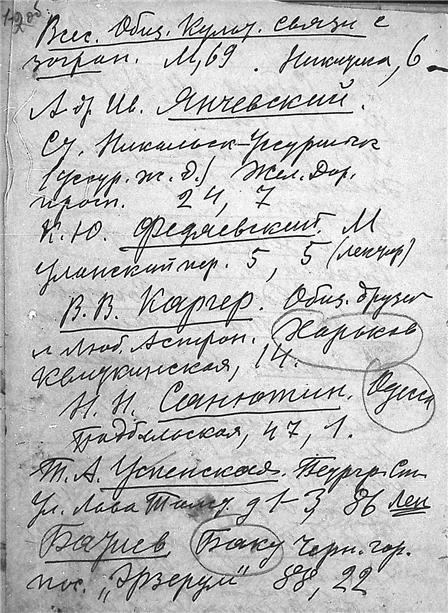 Всес. Общ. Культ. связи с
загран. М, 69. Никитма, 6
Адр. Ив. Янчевский.
Ст. Никольск-Уссурийск
(уссур. ж. д.) Жел. Дор.
просп. 24, 7
К. Ю. Федяевский. М
Уланский пер. 5, 5 (Лектор)
В. В. Каргер. Общ. друзей
и люб. Астрон. Харьков
14.
Н. Н. Санютин. Одесса
47, 1.
Т. А. Успенская.
Ул. Льва Толст. д 1-3, 86 Лен
Багиев Баку Черн. гор.
пос. „Эрзерум" 88, 22